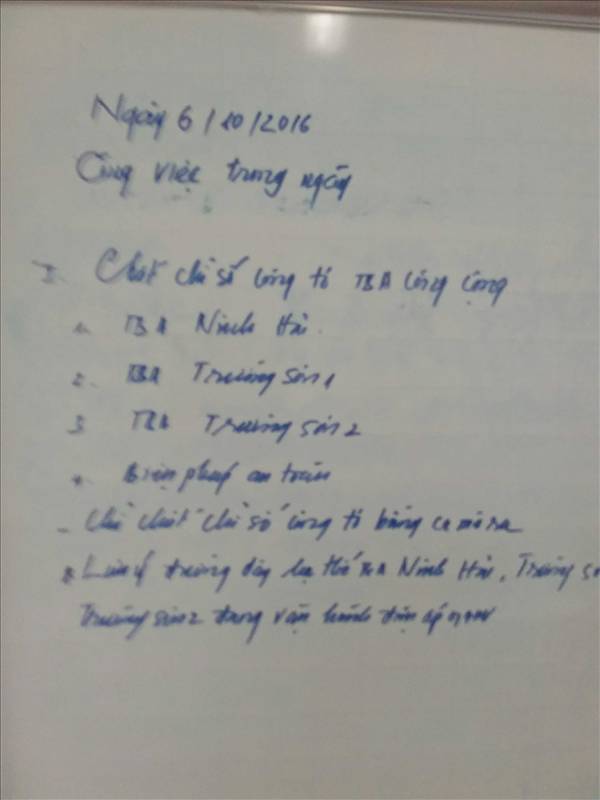 Ngày 6/10/2016
Công việc trong ngày
I. Chốt chỉ số công tơ TBA công cộng
1. TBA Ninh Hải.
2. TBA Trường Sơn 1
3. TBA Trường Sơn 2
* Biện pháp an toàn
- Chỉ chốt chỉ số công tơ bằng camera
* Lưu ý đường dây hạ thế TBA Ninh Hải, Trường
Trường Sơn 2 đang vận hành điện áp